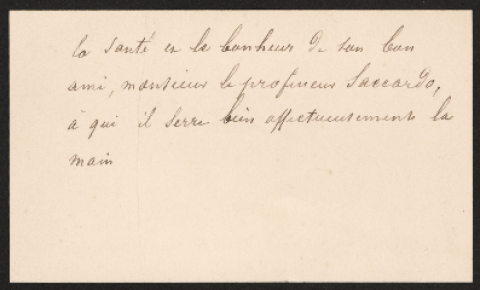 la santé et le bonheur de son bon
ami, monsieur le professeur Saccardo,
à qui il serre bien affectueusement la
main